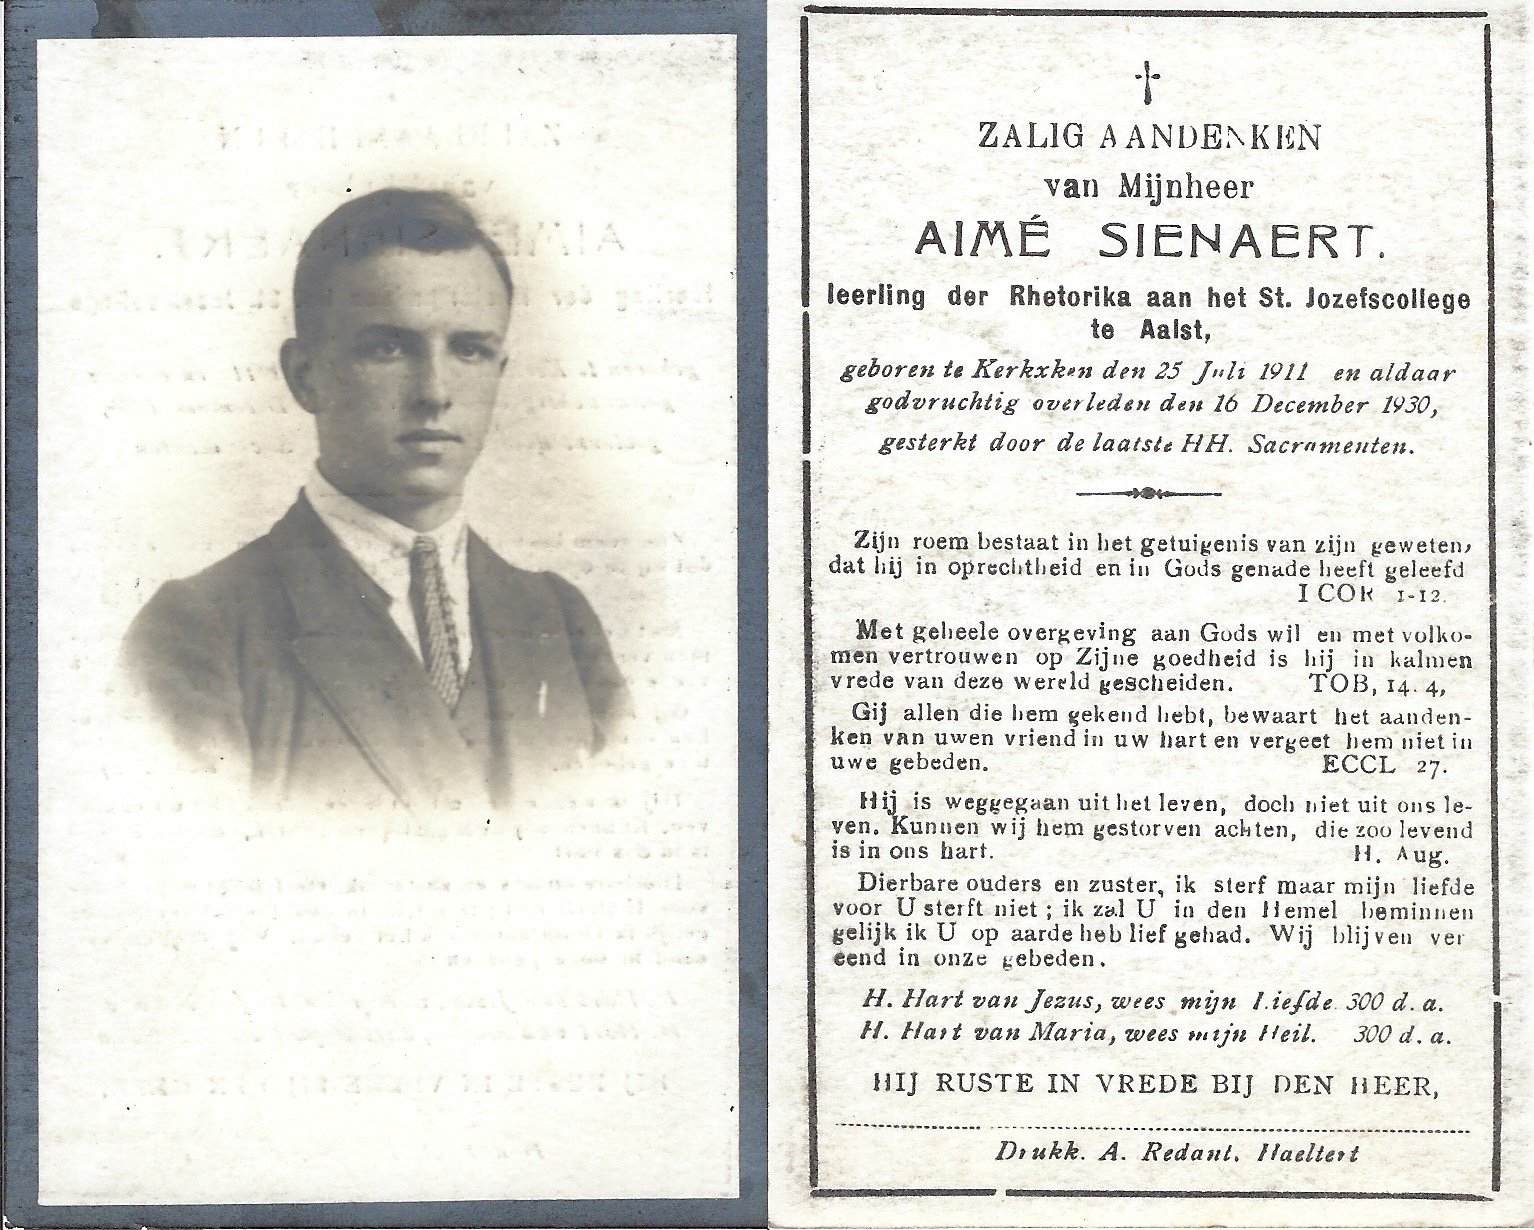 ZALIG AANDENKEN
van Mijnheer
AIMÉ SIENAERT.
leerling der Rhetorika aan het St. Jozefscollege
te Aalst,
geboren te Kerkxken den 25 Juli 1911 en aldaar
godvruchtig overleden den 16 December 1930,
gesterkt door de laatste HH. Sacramenten.
Zijn roem bestaat in het getuigenis van zijn geweten,
dat hij in oprechtheid en in Gods genade heeft geleefd
I COR 1-12.
Met geheele overgeving aan Gods wil en met volko-
men vertrouwen op Zijne goedheid is hij in kalmen
vrede van deze wereld gescheiden. TOB, 14. 4,
Gij allen die hem gekend hebt, bewaart het aanden-
ken van uwen vriend in uw hart en vergeet hem niet in
uwe gebeden. ECCL 27.
Hij is weggegaan uit het leven, doch niet uit ons le-
ven. Kunnen wij hem gestorven achten, die zoo levend
is in ons hart. H. Aug.
Dierbare ouders en zuster, ik sterf maar mijn liefde
voor U sterft niet ; ik zal U in den Hemel beminnen
gelijk ik U op aarde heb lief gehad. Wij blijven ver
eend in onze gebeden.
H. Hart van Jezus, wees mijn Liefde 300 d. a.
H. Hart van Maria, wees mijn Heil. 300 d. a.
HIJ RUSTE IN VREDE BIJ DEN HEER,
Drukk. A. Redant. Haeltert